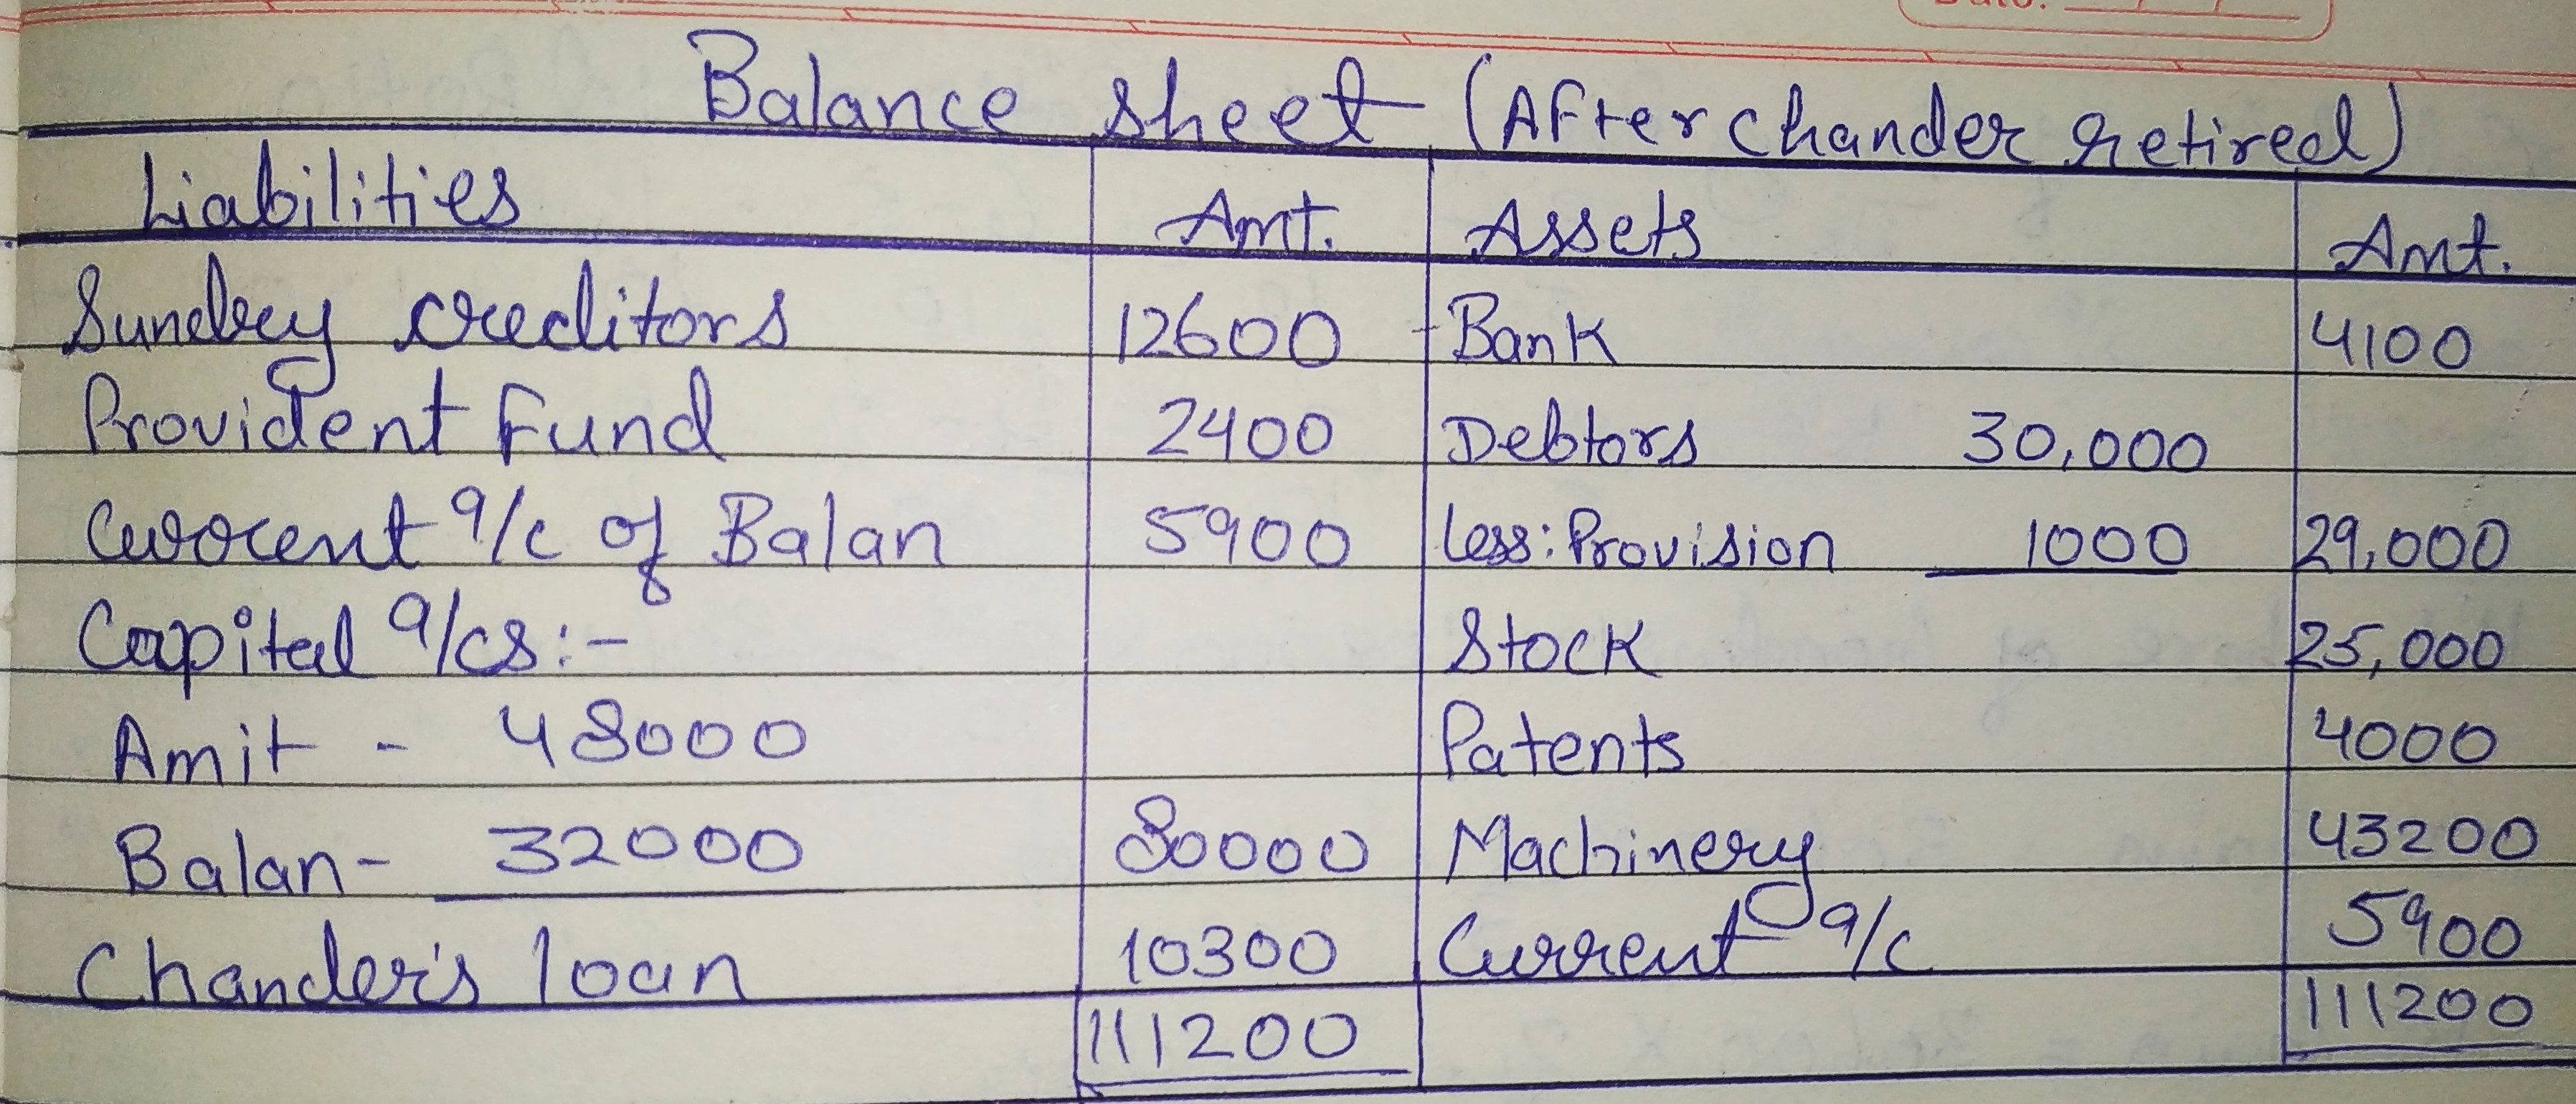 Date: __/__/__
Balance sheet (After chander retired)
Liabilities Amt. Assets Amt.
Sundry creditors 12600 Bank 4100
Provident Fund 2400 Debtors 30,000
Current a/c of Balan 5900 less: Provision 1000 29,000
Capital a/cs:- Stock 25,000
Amit - 48000 Patents 4000
Balan- 32000 80000 Machinery 43200
Chander's loan 10300 Current a/c 5900
111200 111200